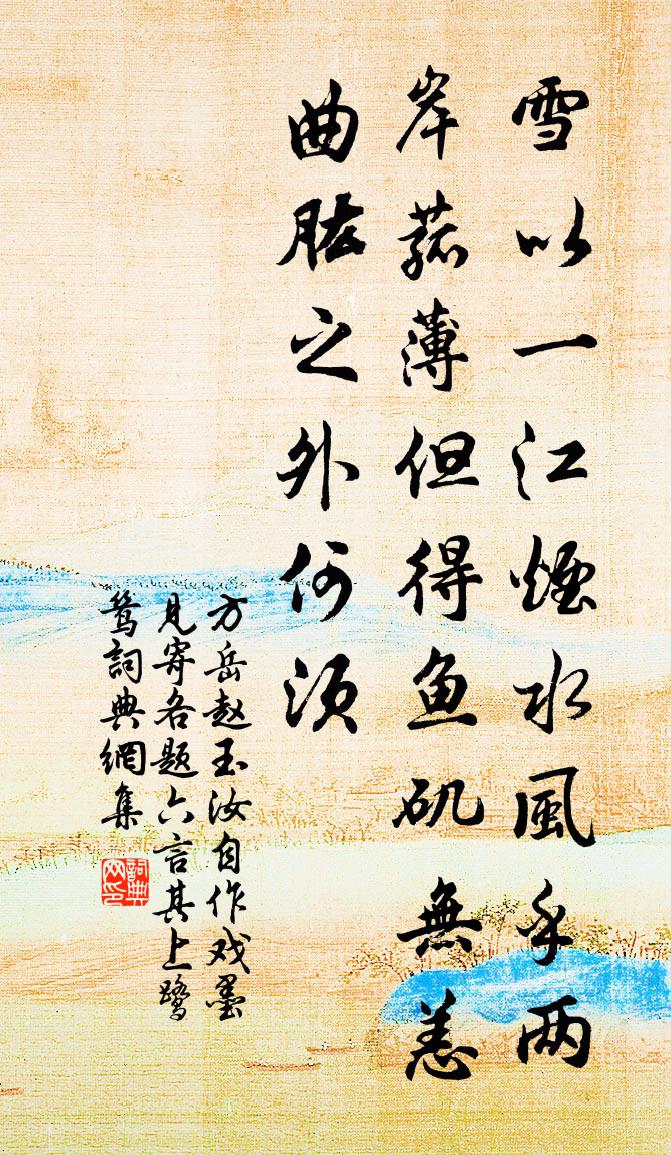 雪以一江煙水風乎两
岸菰薄但得鱼矶無恙
曲肱之外何須
方岳赵玉汝自作戏墨
见寄各题六言其上鹭
鸶詞典網集
詞典网印